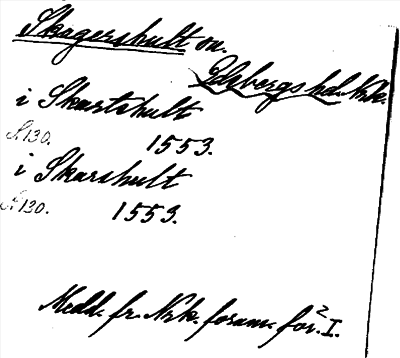 Skagershult sn.
Edsbergs hd. Nrk.
i Skartshult
S. 130. 1553.
i Skarshult
S. 130. 1553.
Medd. fr. Nrk. fornm. för. I.